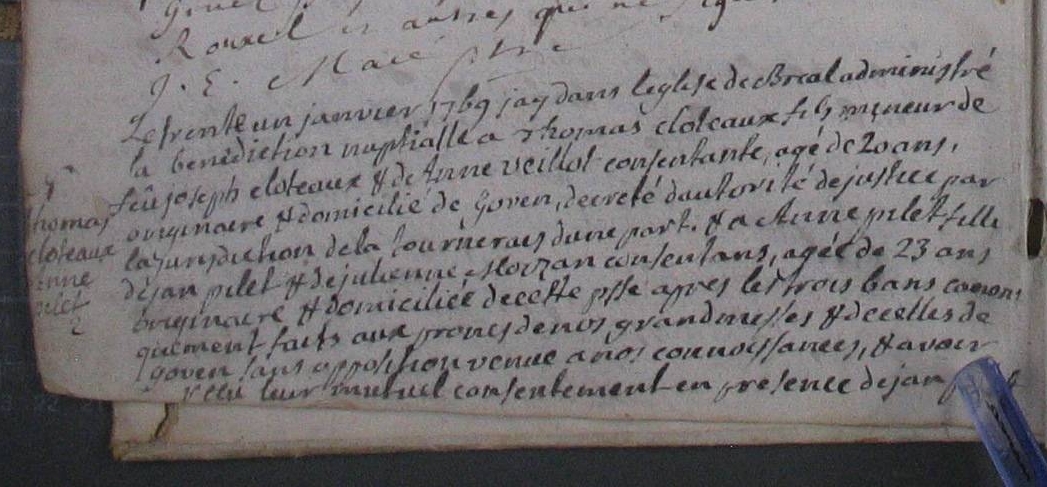 Rouxel et autres qui ne
J. E. Macé ptre
Le trente un janvier 1769 jay dans leglise de Breal administré
la benediction nuptialle a Thomas cloteaux fils mineur de
feu joseph cloteaux & de Anne veillot consentante, agé de 20 ans,
originaire & domicilié de Goven, decreté dautorité de justice par
la jurisdiction de la tournerais dune part. & a Anne pilet fille
de jan pilet & de julienne Moizan consentans, agée de 23 ans
originaire & domiciliée de cette psse apres les trois bans canoni
quement faits aux prones de nos grandmesses & de celles de
goven sans opposition venue a nos connoissances, & avoir
recu leur mutuel consentement en presence de jan
thomas
cloteaux
anne
pilet